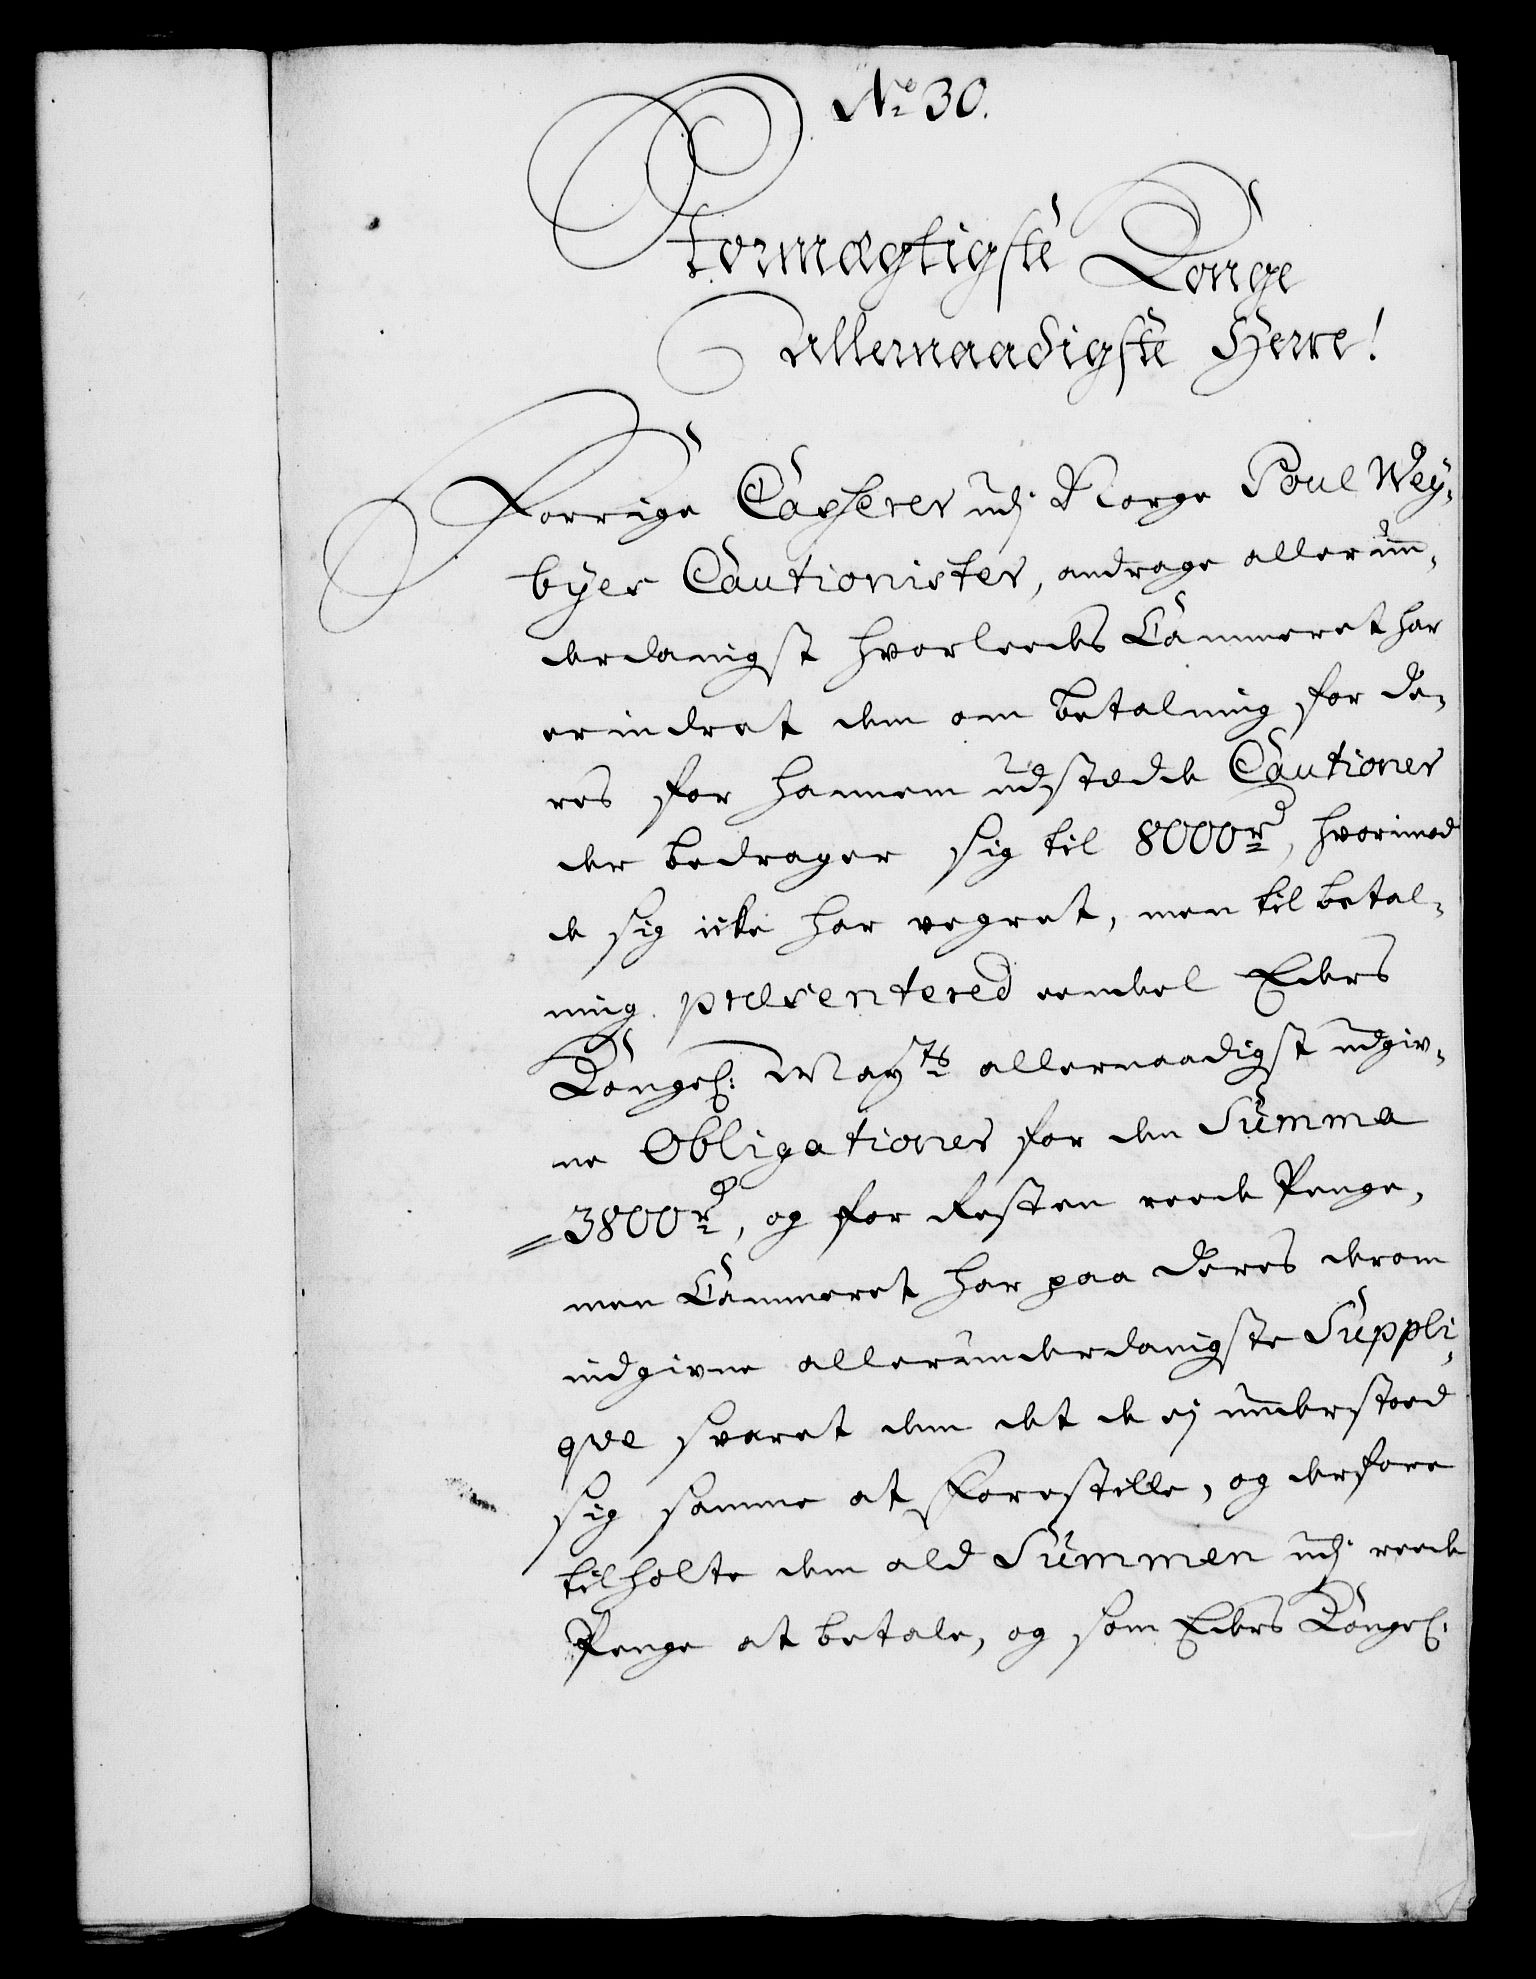 No 30.
Stormægtigste Konge
Allernaadigste Herre!
Forrige Casserer udj Norge Poul Wey-
byes Cautionister, andrage allerun-
derdanigst hvorledes Cammeret har
erindret dem om betalning for de-
res for hannem udstædde Cautioner
der bedrager sig til 8000 rd, hvorimod
de sig icke har vegret, men til betal-
ning præsentered eendeel Eders
Kongel: May:ts allernaadigst udgiv-
ne Obligationer for den Summa
3800 rd, og for Resten reede Penge,
men Cammeret har paa deres derom
indgivne allerunderdanigste Suppli-
qve svaret dem det de ej understoed
sig samme at forestille, og derfore
tilholte dem ald Summen udj reede
Penge at betale, og som Eders Kongel: